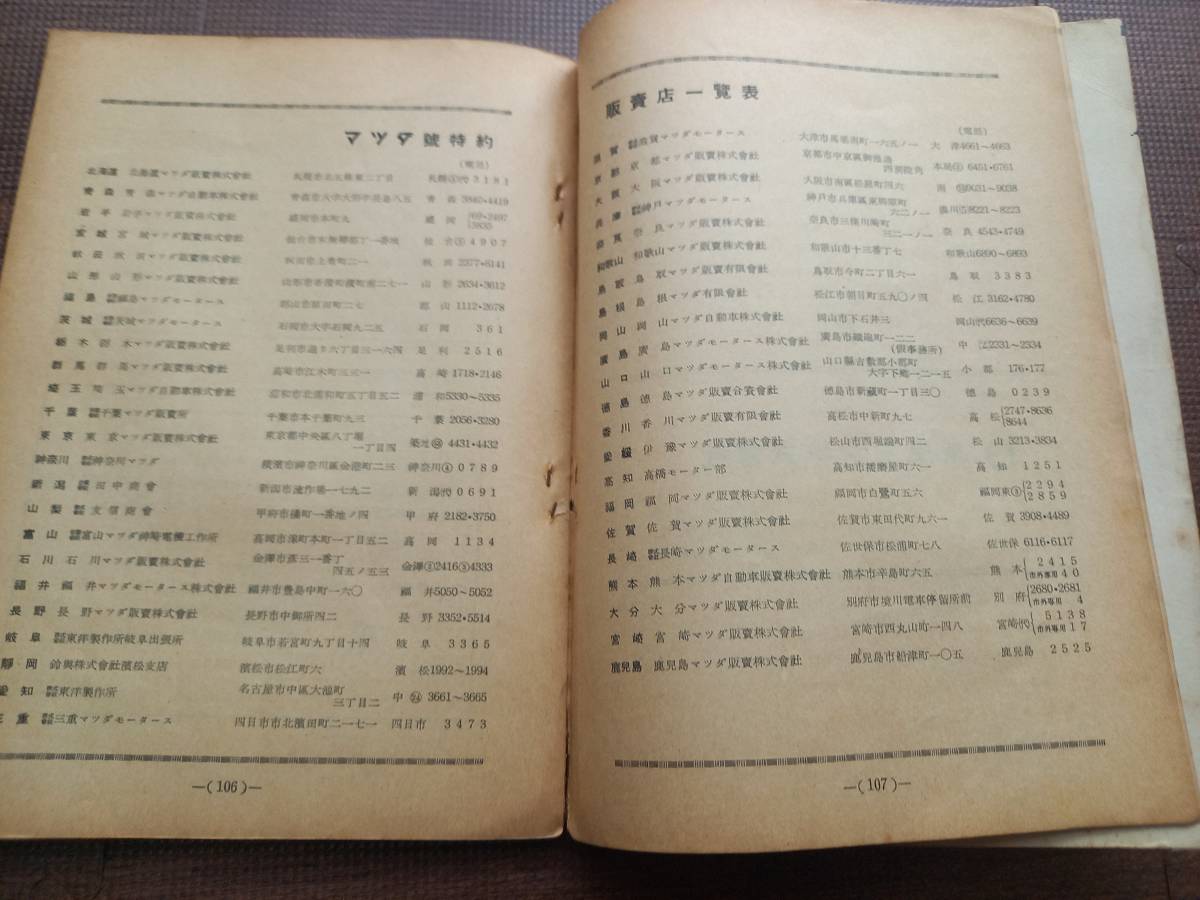 マツダ號特約
(電話)
北海道 北海道マツダ販賣株式會社 札幌市北五條東二丁目 札幌 3181
青森 青森マツダ自動車株式會社 青森市大字大野字長島八五 青森 3860・4419
岩手 岩手マツダ販賣株式會社 盛岡市本町九 盛岡
宮城 宮城マツダ販賣株式會社 仙台市 丁一番地 仙台 4907
秋田 秋田マツダ販賣株式會社 秋田市上 町二一 秋田 2377・5141
山形 山形マツダ販賣株式會社 山形市香澄町 二七一 山形 2634・3612
福島 株式會社福島マツダモータース 郡山市 町二七 郡山 1112・2678
茨城 株式會社茨城マツダモータース 石岡市大字石岡九二五 石岡 361
栃木 栃木マツダ販賣株式會社 足利市通り六丁目三一六四 足利 2516
群馬 群馬マツダ販賣株式會社 高崎市江木町三三一 高崎 1718・2146
埼玉 埼玉マツダ自動車株式會社 浦和市北浦和町五丁目五二 浦和 5330～5335
千葉 千葉マツダ販賣所 千葉市本千葉町九三 千葉 2056・3280
東京 東京マツダ販賣株式會社 東京都中央區八丁堀 築地 4431・4432
一丁目四
神奈川 株式會社神奈川マツダ 横濱市神奈川區金港町二三 神奈川④0789
新潟 田中商會 新潟市 作場一七九二 新潟 0691
山梨 友信商會 甲府市橘町一番地ノ四 甲府 2182・3750
富山 富山マツダ神崎電機工作所 高岡市 町本町一丁目五二 高岡 1134
石川 石川マツダ販賣株式會社 金澤市彦三一番丁 金澤②2416③4333
四五ノ五三
福井 福井マツダモータース株式會社 福井市豊島中町一六〇 福井 5050～5052
長野 長野マツダ販賣株式會社 長野市中御所四二 長野 3352・5514
岐阜 株式會社東洋製作所岐阜出張所 岐阜市若宮町九丁目十四 岐阜 3365
靜岡 鈴與株式會社濱松支店 濱松市松江町六 濱松 1992～1994
愛知 株式會社東洋製作所 名古屋市中區大池町 中㉔3661～3665
三丁目二
三重 株式會社三重マツダモータース 四日市市北濱田町二一七一 四日市 3473
―(106)―
販賣店一覽表
(電話)
滋賀 株式會社滋賀マツダモータース 大津市馬場南町一六五ノ一 大津 4661～4663
京都 京都マツダ販賣株式會社 京都市中京區御池通 本局 6451・6761
西洞院角
大阪 大阪マツダ販賣株式會社 大阪市南區松屋町四六 南 9031～9038
兵庫 株式會社神戸マツダモータース 神戸市兵庫區東 町 湊川 8221～8223
六二ノ一
奈良 奈良マツダ販賣株式會社 奈良市三條川崎町 奈良 4543・4749
三二一ノ一
和歌山 和歌山マツダ販賣株式會社 和歌山市十三番丁七 和歌山 6890～6893
鳥取 鳥取マツダ販賣有限會社 鳥取市今町二丁目六一 鳥取 3383
島根 島根マツダ有限會社 松江市朝日町五九〇ノ四 松江 3162・4780
岡山 岡山マツダ自動車株式會社 岡山市下石井三 岡山 6636～6639
廣島 廣島マツダモータース株式會社 廣島市鐵砲町一二二 中 2331～2334
(假事務所)
山口 山口マツダモータース株式會社 山口縣吉敷郡小郡町 小郡 176・177
大字下郷一二一五
徳島 徳島マツダ販賣合資會社 徳島市新蔵町一丁目三〇 徳島 0239
香川 香川マツダ販賣有限會社 高松市中新町九七 高松 2747・8636
8644
愛媛 伊豫マツダ販賣株式會社 松山市西堀端町四二 松山 3213・3834
高知 高橋モーター部 高知市播磨屋町六一 高知 1251
福岡 福岡マツダ販賣株式會社 福岡市白鷺町五六 福岡東③ 2294
2859
佐賀 佐賀マツダ販賣株式會社 佐賀市東田代町九六一 佐賀 3908・4489
長崎 株式會社長崎マツダモータース 佐世保市松浦町七八 佐世保 6116・6117
熊本 熊本マツダ自動車販賣株式會社 熊本市辛島町六五 熊本 2415
市外專用 40
大分 大分マツダ販賣株式會社 別府市境川電車停留所前 別府 2680・2681
市外專用 4
宮崎 宮崎マツダ販賣株式會社 宮崎市西丸山町一四八 宮崎(代) 5138
市外專用 17
鹿兒島 鹿兒島マツダ販賣株式會社 鹿兒島市船津町一〇五 鹿兒島 2525
―(107)―